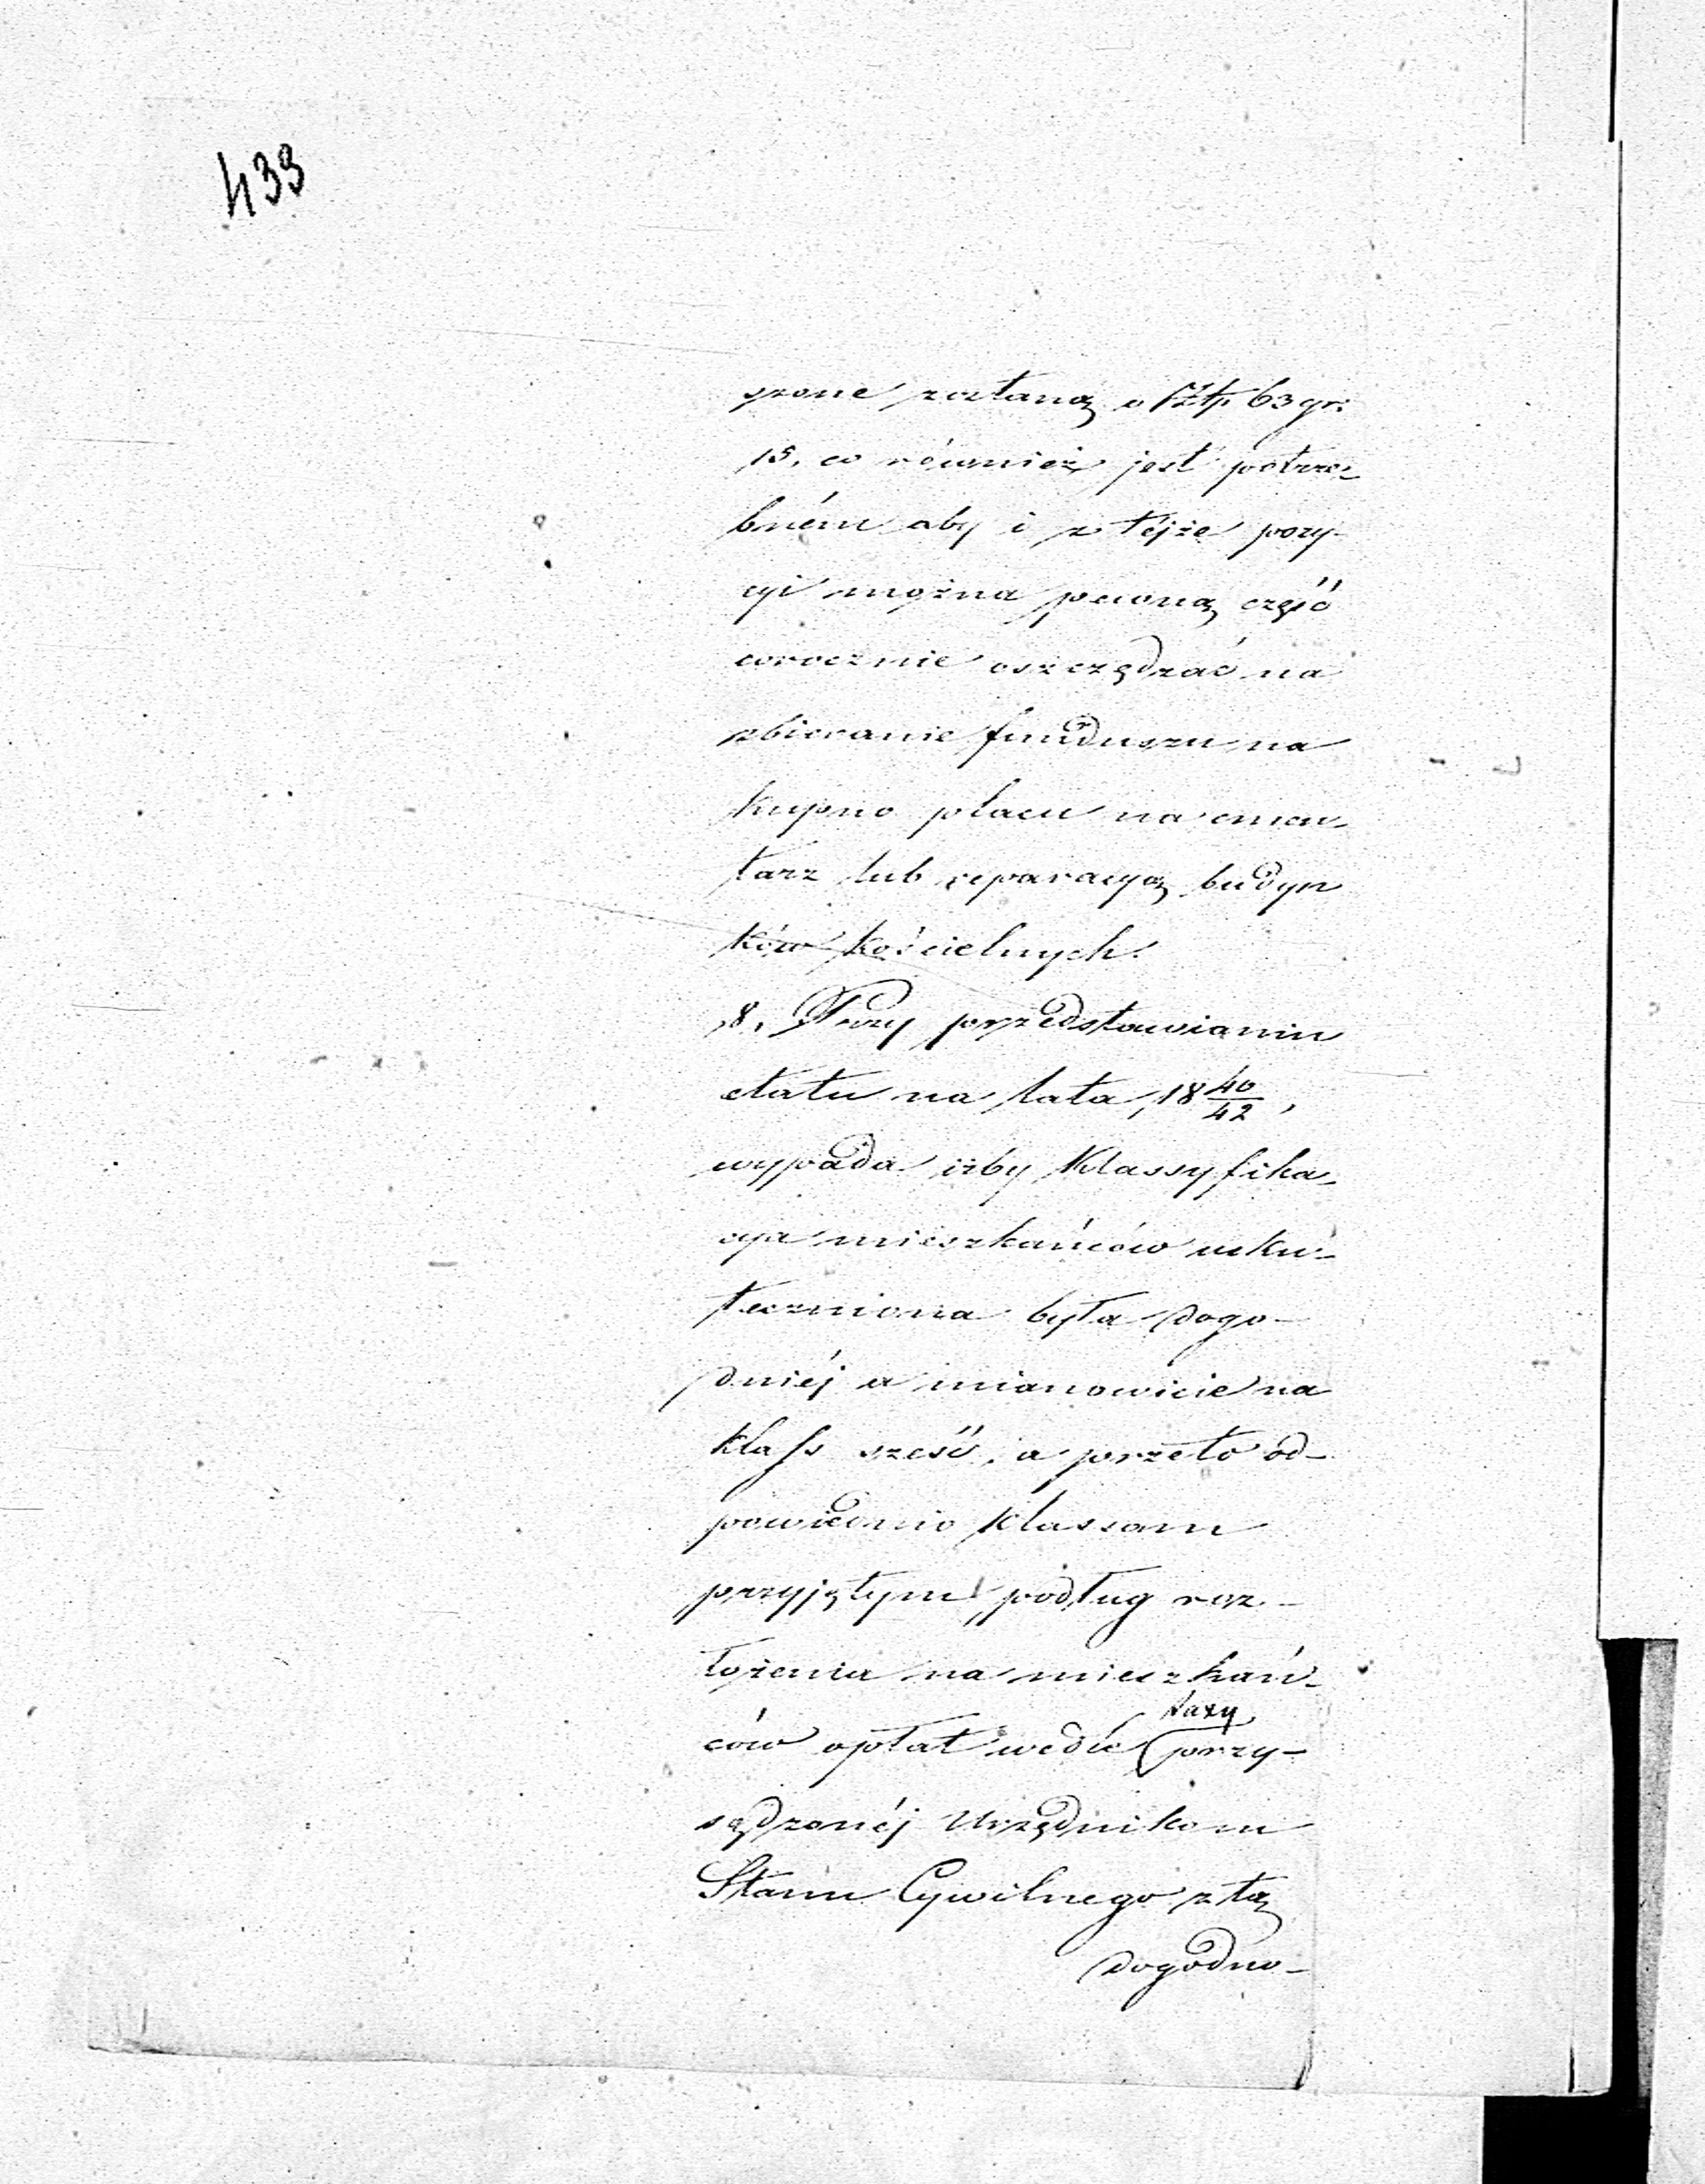 433
szone zostaną o Złp 63 gr:
15. co również jest potrze-
bném aby i z téjże pozy-
cyi można pewną część
corocznie oszczędzać na
zbieranie funduszu na
kupno placu na cmen-
tarz lub reparacyą budyn
ków kościelnych.
8. Przy przedstawianiu
etatu na lata 18 40/42,
wypada iżby Klassyfika-
cya mieszkańców usku-
teczniona była dogo-
dniéj a mianowicie na
klass sześć, a przeto od-
powiednio klassom
przyjętym podług roz-
łożenia na mieszkań-
taxy
ców opłat wedle przy-
sądzonéj Urzędnikom
Stanu Cywilnego z tą
dogodno-